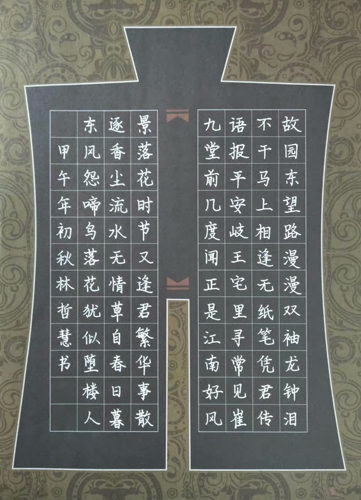 故园东望路漫漫双袖龙钟泪
不干马上相逢无纸笔凭君传
语报平安岐王宅里寻常见崔
九堂前几度闻正是江南好风
景落花时节又逢君繁华事散
逐香尘流水无情草自春日暮
东风怨啼鸟落花犹似堕楼人
甲午年初秋林哲慧书